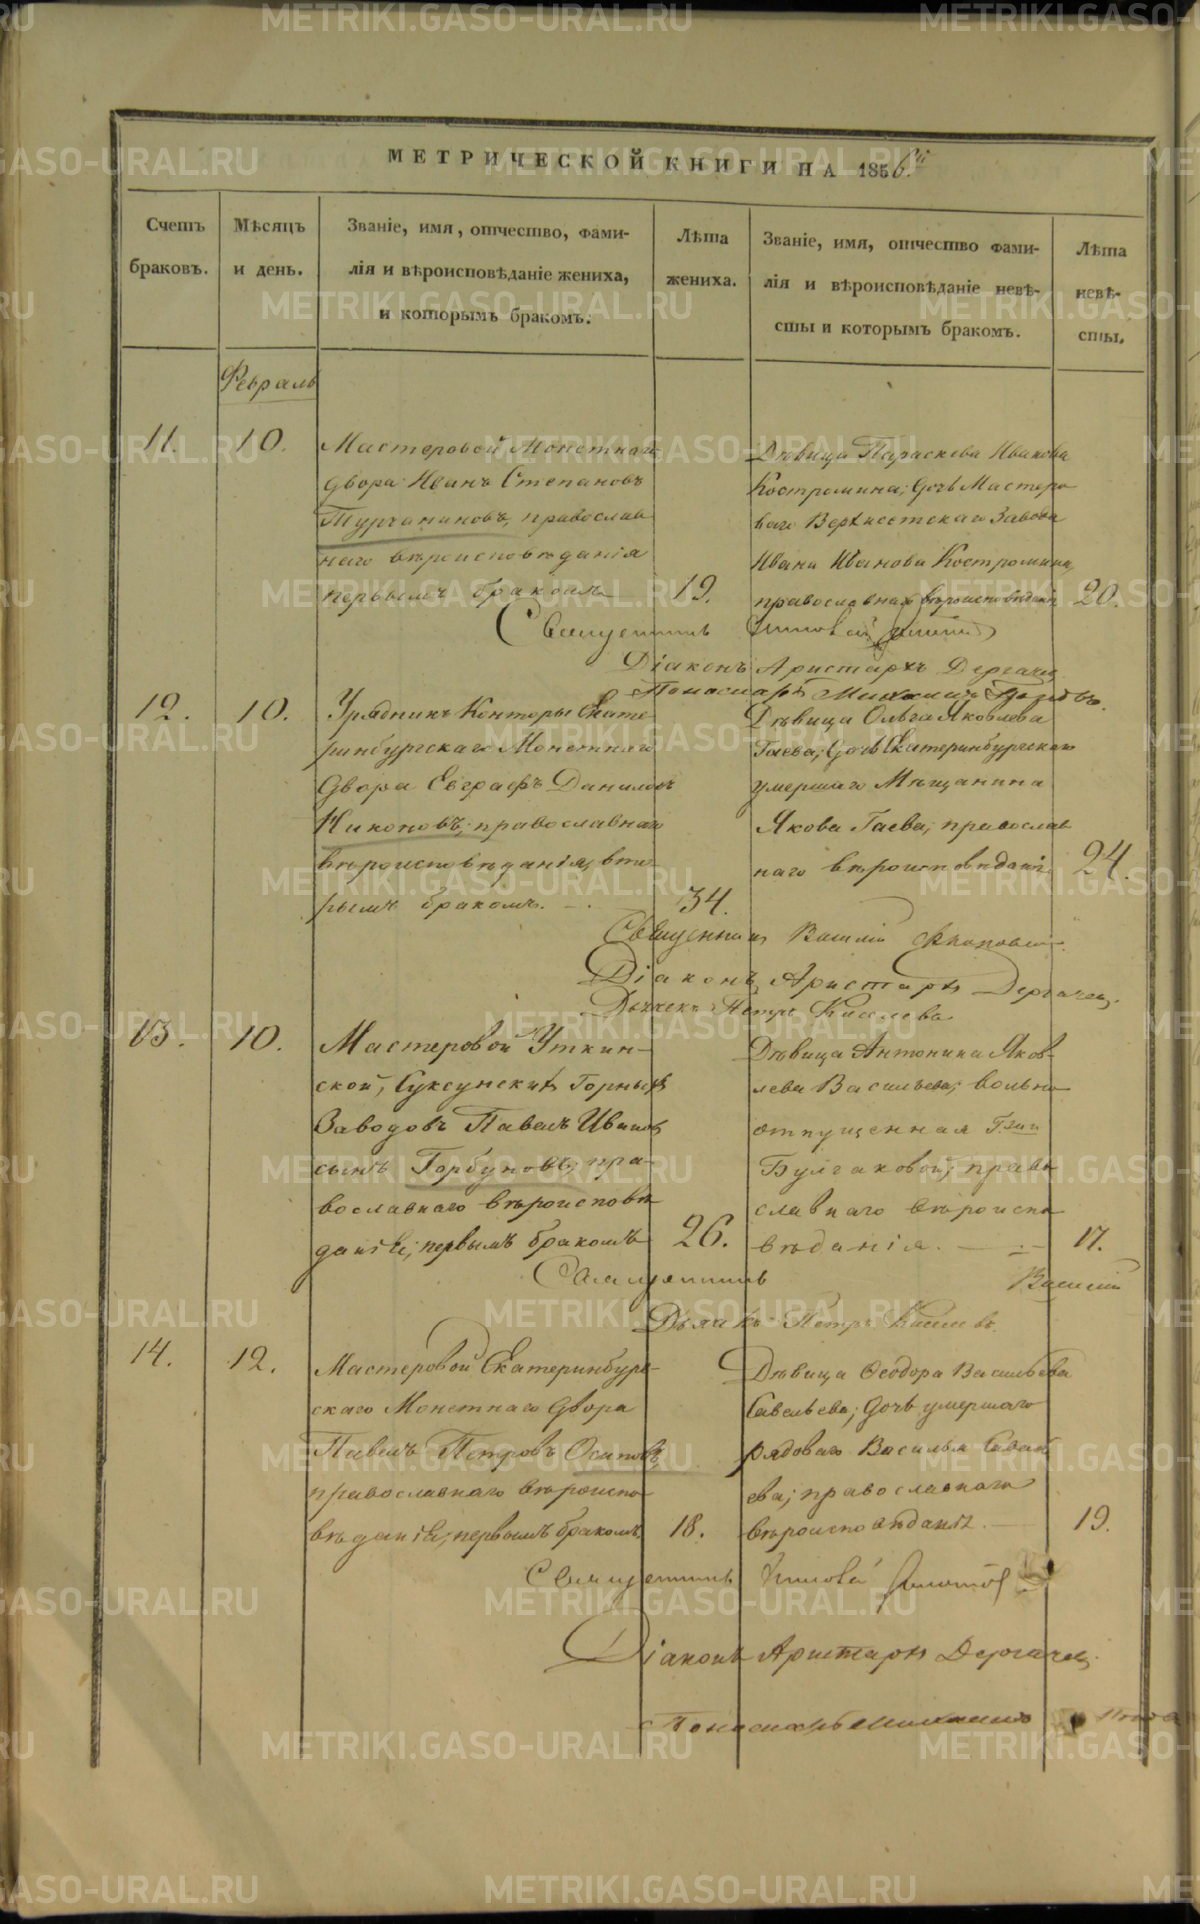 МЕТРИЧЕСКОЙ КНИГИ НА 1856.й
Счетъ браковъ.
Мѣсяцъ и день.
Званіе, имя, отчество, фами-
лія и вѣроисповѣданіе жениха,
и которымъ бракомъ.
Лѣта
жениха.
Званіе, имя, отчество фами-
лія и вѣроисповѣданіе невѣ-
сты и которымъ бракомъ.
Лѣта
невѣ-
сты.
Февраль
11.
10.
Мастеровой Монетнаго
двора Иванъ Степановъ
Турчаниновъ, православ
наго вѣроисповѣданія
первымъ бракомъ
19.
Дѣвица Параскева Иванова
Костромина; дочь Мастеро
ваго Верхисетскаго Завода
Ивана Иванова Костромина,
православнаго вѣроисповѣданія
20.
Священникъ
Діаконъ Аристархъ Дергачевъ
Пономарь Михаилъ
12.
10.
Урядникъ Конторы Екате
ринбургскаго Монетнаго
Двора Евграфъ Даниловъ
Никоновъ; православнаго
вѣроисповѣданія, вто
рымъ бракомъ.
34.
Дѣвица Ольга Яковлева
Гаева; дочь Екатеринбургскаго
умершаго Мѣщанина
Якова Гаева; православ
наго вѣроисповѣданія
24.
Священникъ Василій
Діаконъ Аристархъ Дергачевъ.
Дьячекъ Петръ Киселевъ
13.
10.
Мастеровой Уткин-
ской, Суксунскихъ Горныхъ
Заводовъ Павелъ Ивановъ
сынъ Горбуновъ; пра-
вославнаго вѣроисповѣ
данія; первымъ бракомъ
26.
Дѣвица Антонина Яков-
лева Васильева; вольно
отпущенная Г-жи
Булгаковой; право
славнаго вѣроиспо
вѣданія.
17.
Священникъ Василій
Дьячекъ Петръ Киселевъ
14.
12.
Мастеровой Екатеринбург-
скаго Монетнаго двора
Павелъ Петровъ Осиповъ,
православнаго вѣроиспо
вѣданія; первымъ бракомъ
18.
Дѣвица Ѳеодора Васильева
Савельева; дочь умершаго
рядоваго Василья Савель
ева; православнаго
вѣроисповѣданія.
19.
Священникъ
Діаконъ Аристархъ Дергачевъ.
Пономарь Михаилъ
METRIKI.GASO-URAL.RU